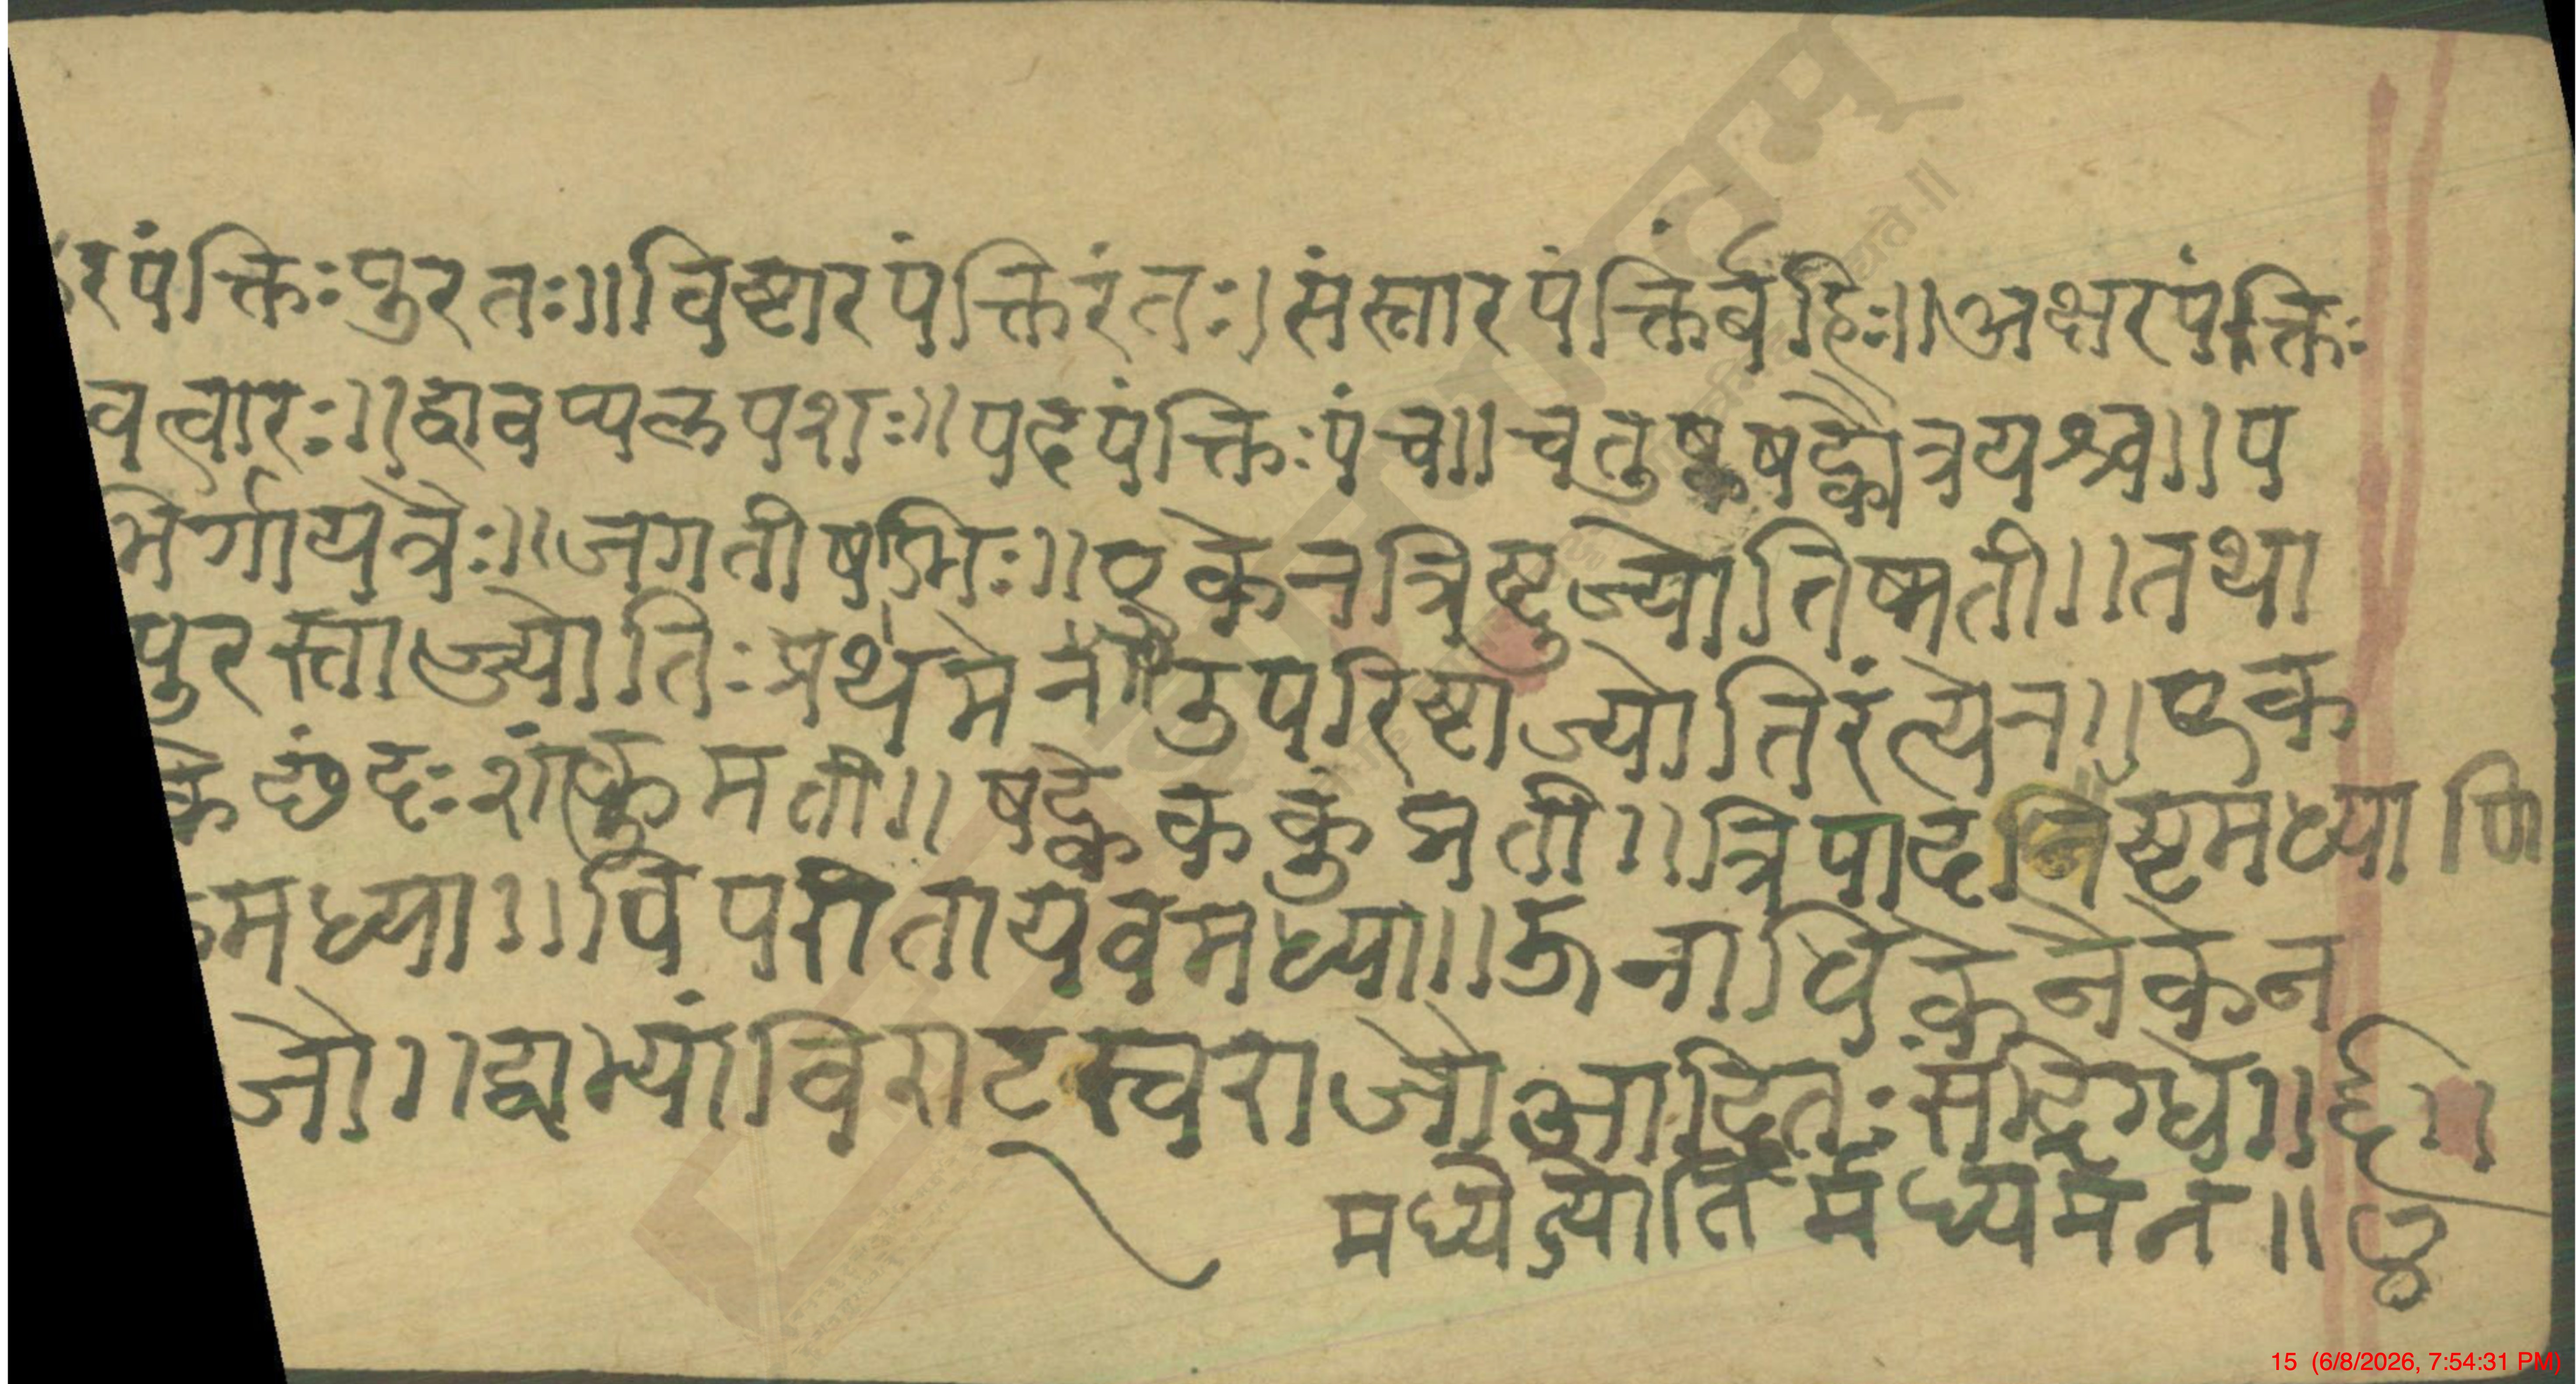 रपंक्तिःपुरतः॥विष्टारपंक्तिरंतः।संस्तारपंक्तिर्बहिः॥अक्षरपंक्तिः
चत्वारः॥द्वावप्यल्पशः॥पदपंक्तिःपंच॥चतुष्कषट्कौत्रयश्च॥प
भिर्गायत्रैः॥जगतीषड्भिः॥एकेनत्रिष्टुज्योतिष्मती॥तथा
पुरस्ताज्ज्योतिःप्रथमेन॥उपरिष्टाज्योतिरंत्येन॥एक
केछंदःशंकुमती॥षट्केककुद्मती॥त्रिपादनिष्टमध्यापि
मध्या॥विपरीतायवमध्या॥ऊनाधिकेनैकेन
जौ॥द्वाभ्यांविराटस्वराजौआदितःसंदिग्धे॥
मध्येज्योतिर्मध्यमेन॥
15 (6/8/2026, 7:54:31 PM)